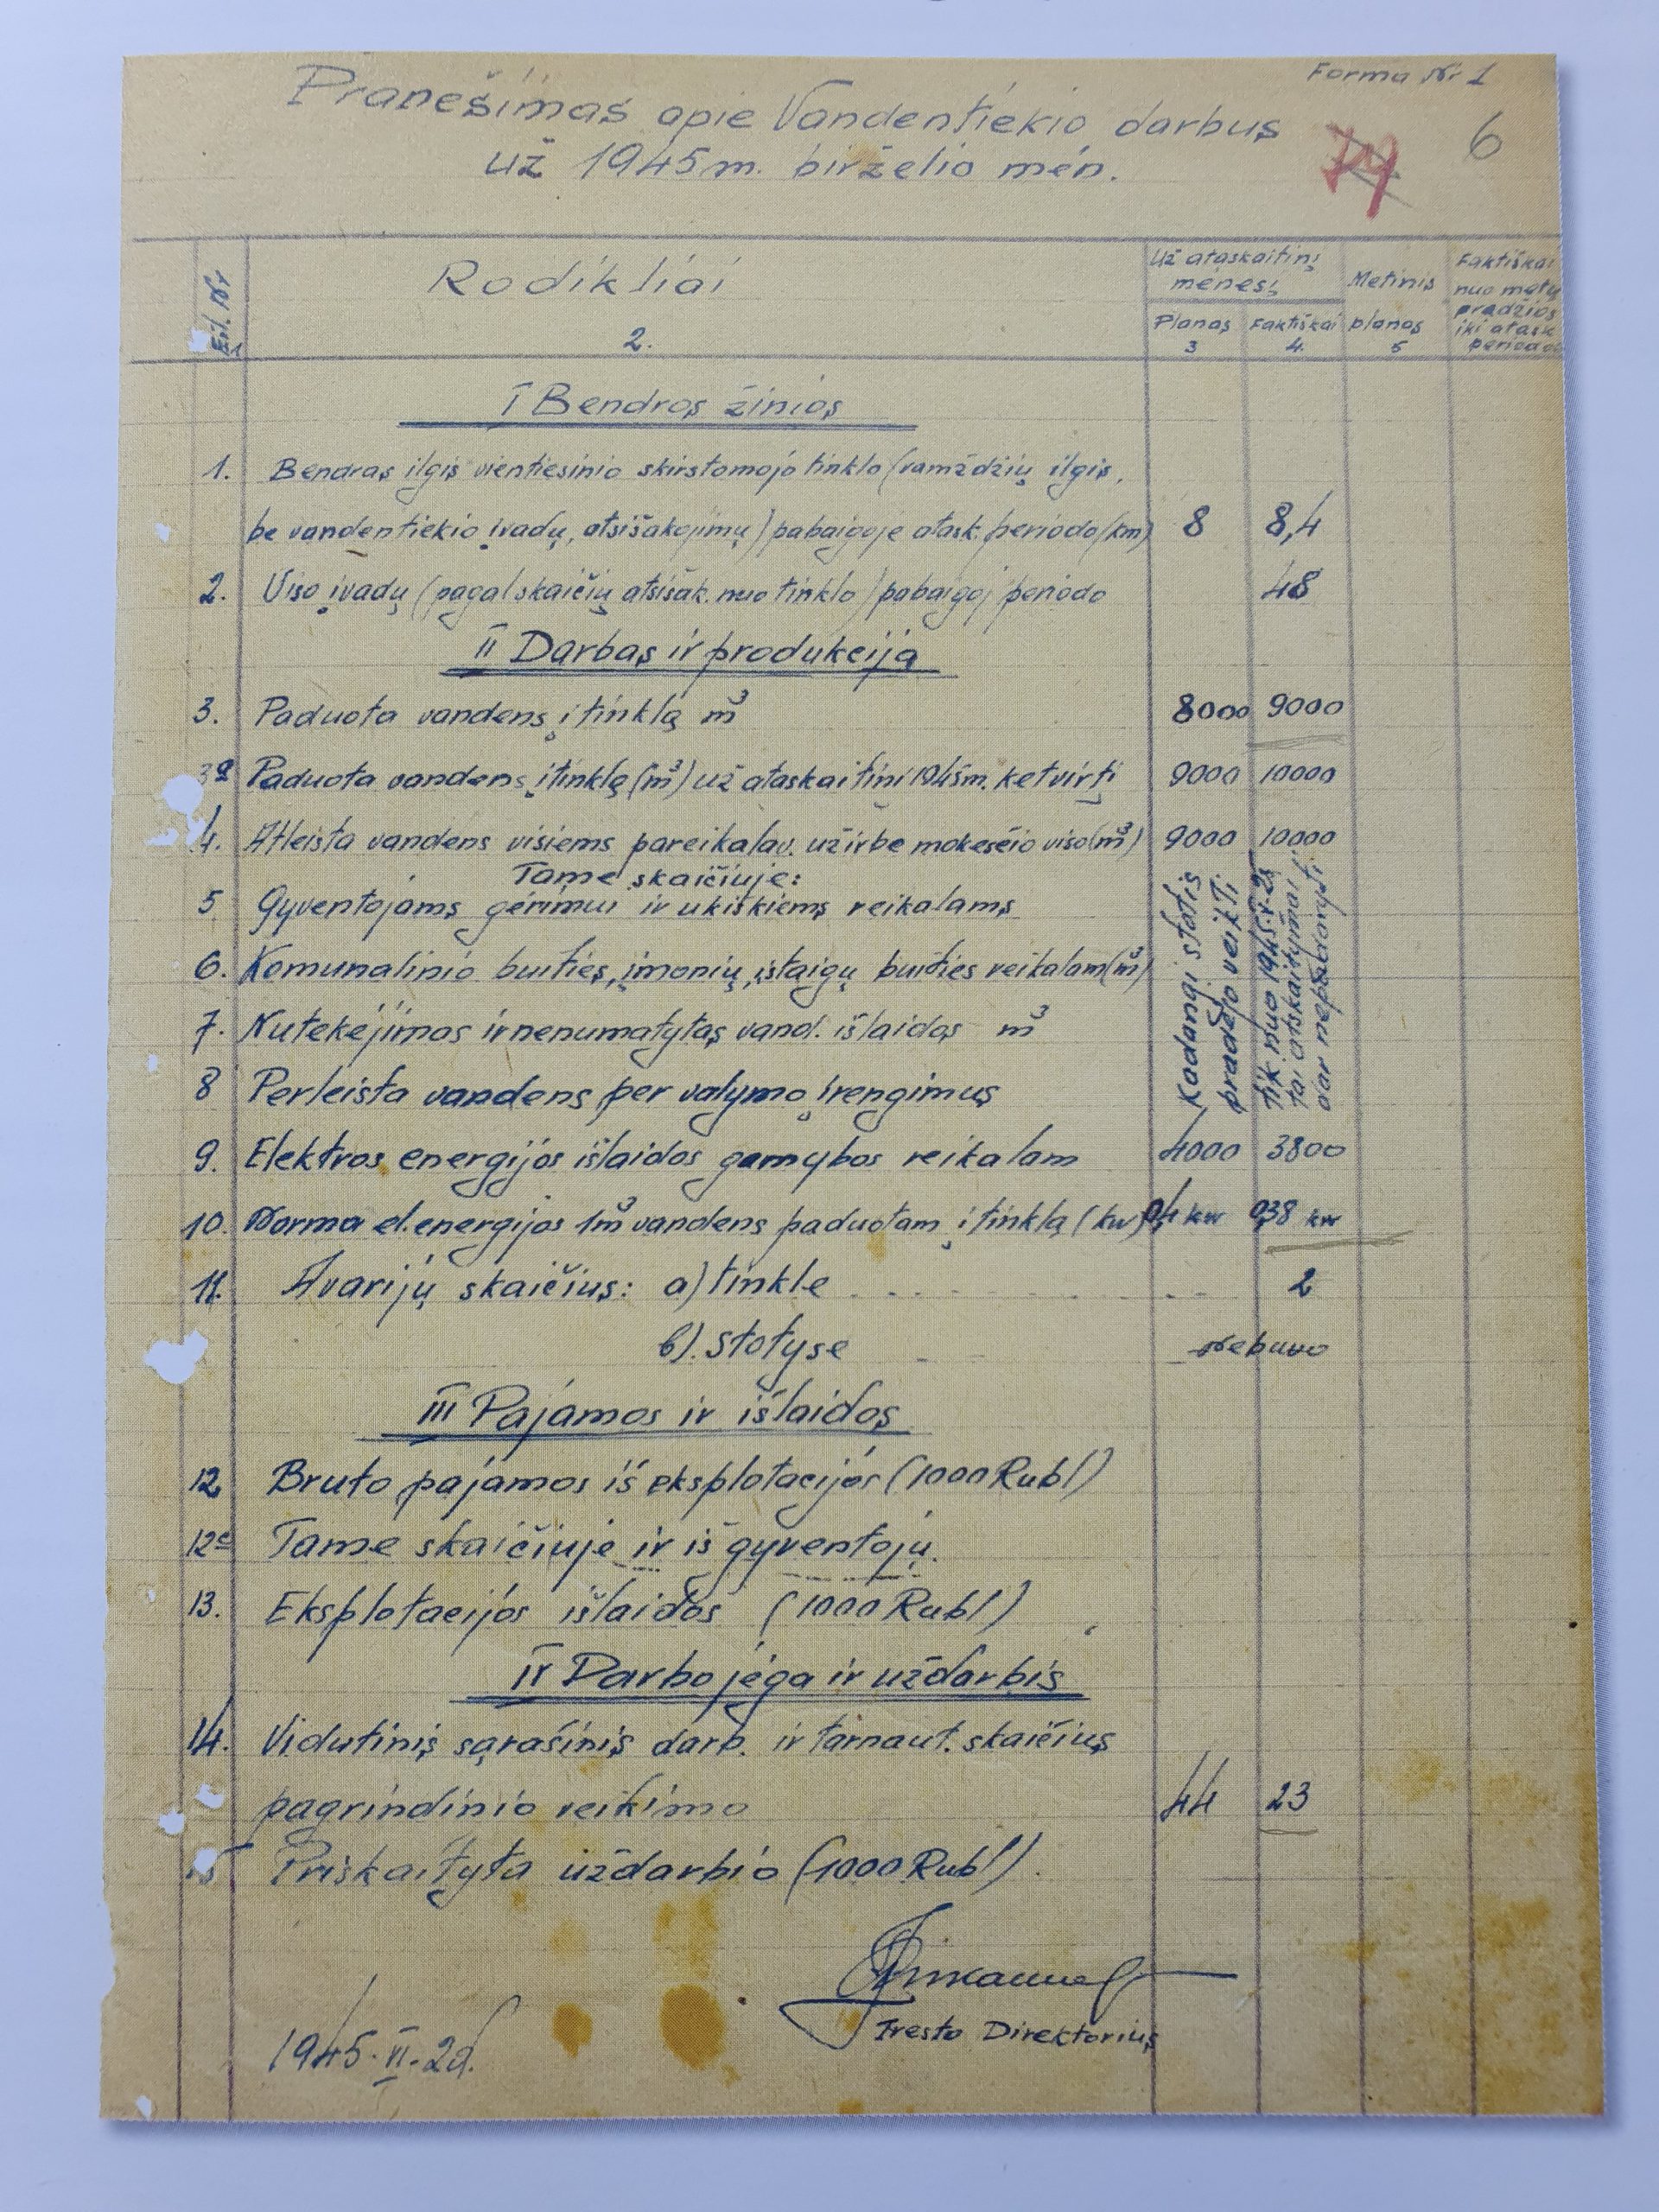 Forma Nr 1
Pranešimas apie Vandentiekio darbus
už 1945 m. birželio mėn.
79
6
Eil. Nr
1
Rodikliai
2.
Už ataskaitinį
mėnesį
Planas
3
Faktiškai
4.
Metinis
planas
5
Faktiškai
nuo metų
pradžios
iki atask
periodo
I Bendros žinios
1. Bendras ilgis vientiesinio skirstomojo tinklo (vamždžių ilgis,
be vandentiekio įvadų, atsišakojimų) pabaigoje atask. periodo (km) 8 8,4
2. Viso įvadų (pagal skaičių atsišak. nuo tinklo) pabaigoj periodo 48
II Darbas ir produkcija
3. Paduota vandens į tinklą m³ 8000 9000
3a Paduota vandens į tinklą (m³) už ataskaitinį 1945m. ketvirtį 9000 10000
4. Atleista vandens visiems pareikalav. už ir be mokesčio viso (m³) 9000 10000
Tame skaičiuje:
5 Gyventojams gėrimui ir ukiškiems reikalams
6. Komunalinio buities, įmonių, įstaigų buities reikalam (m³)
7. Nutekėjimas ir nenumatytas vand. išlaidos m³
8 Perleista vandens per valymo įrengimus
Kadangi stotis
pradėjo veikti
tik nuo 1945-V-25
tai atskaitymai
dar nepadaryti
9. Elektros energijos išlaidos gamybos reikalam 4000 3800
10. Norma el. energijos 1m³ vandens paduotam į tinklą (kw) 0,4 kw 0,38 kw
11. Avarijų skaičius: a) tinkle 2
b). stotyse Nebuvo
III Pajamos ir išlaidos
12 Bruto pajamos iš eksplotacijos (1000 Rubl)
12a Tame skaičiuje ir iš gyventojų.
13. Eksplotacijos išlaidos (1000 Rubl)
IV Darbo jėga ir uždarbis
14. Vidutinis sąrašinis darb. ir tarnaut. skaičius
pagrindinio veikimo 44 23
15 Priskaityta uždarbio (1000 Rubl).
Tresto Direktorius
1945-VI-2d.